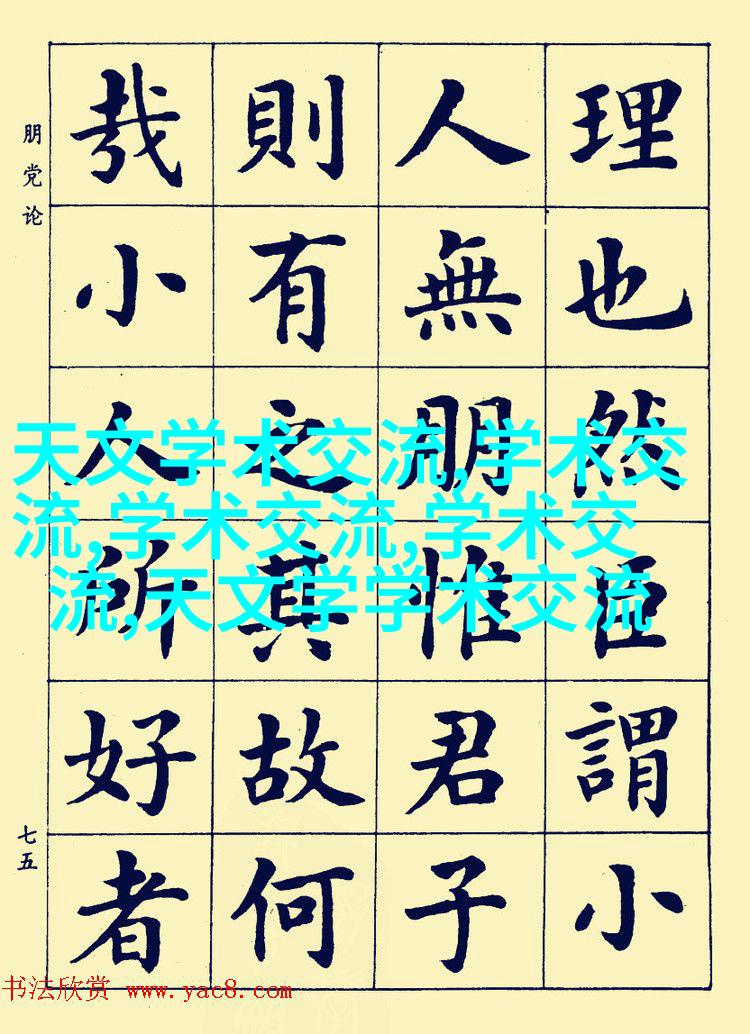 理也然臣謂小
人無朋惟君子
則有之其故何
哉小人所好者
朋党论
七五
天文学术交流,学术交
流,学术交流,学术交
流,天文学学术交流
书法欣赏 www.yac8.com